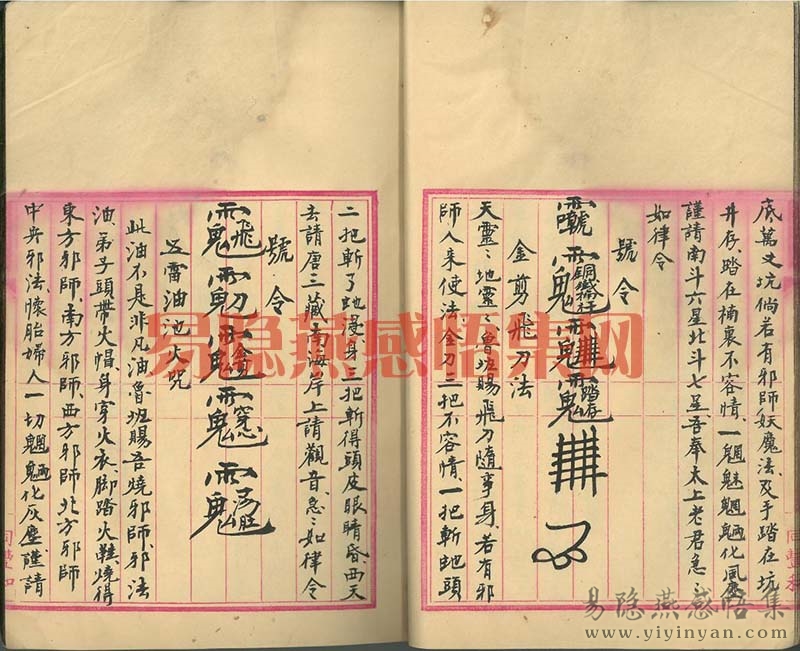 底萬丈坑倘若有邪師妖魔法及手踏在坑
井存踏在楠裏不容情一魍魅魍魎化風塵
謹請南斗六星北斗七星吾奉太上老君急〻
如律令
號令
金剪飛刀法
天靈〻地靈〻魯班賜飛刀隨事身若有邪
師人來使法金刀三把不容情一把斬他頭
二把斬了他浸身三把斬得頭皮眼睛昏西天
去請唐三藏南海岸上請觀音急〻如律令
號令
五雷油池火咒
此油不是非凡油魯班賜吾燒邪師邪法
油弟子頭帶火帽身穿火衣脚踏火鞋燒得
東方邪師南方邪師西方邪師北方邪師
中央邪法懷胎婦人一切魍魎化灰塵謹請
同豐和
易隐燕感悟集网
易隐燕感悟集
www.yiyinyan.com